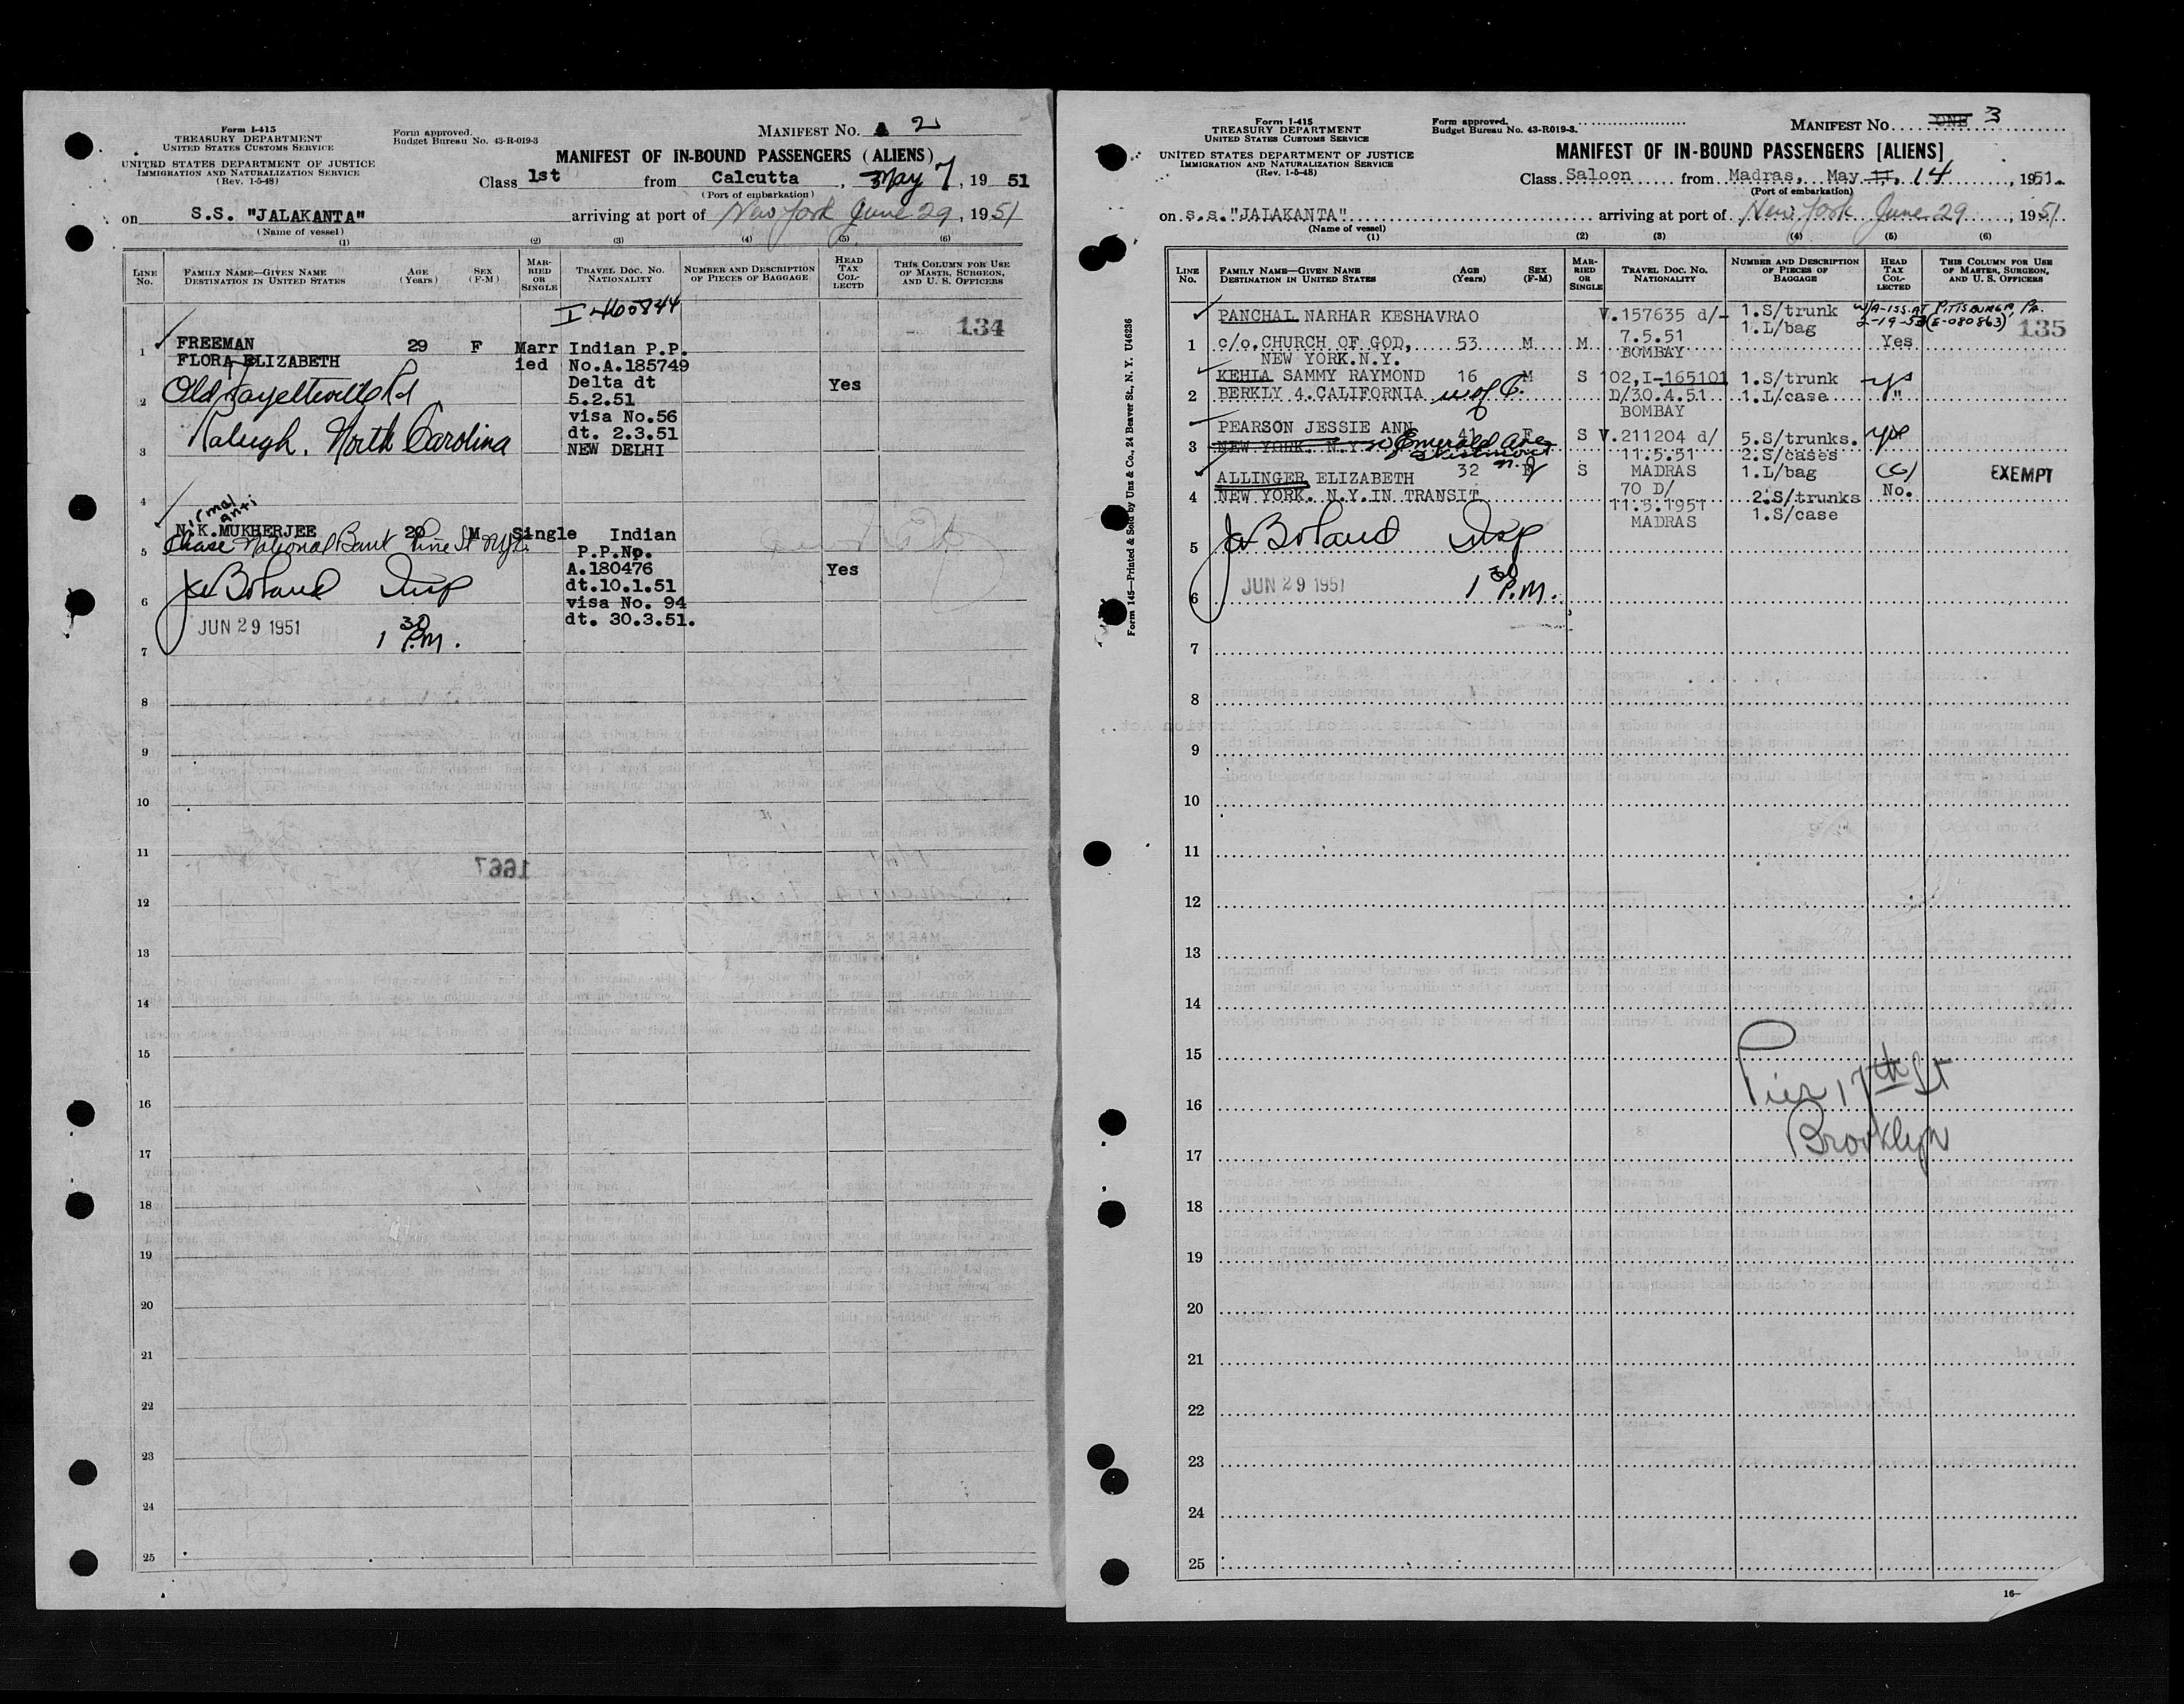 Form I-415
TREASURY DEPARTMENT
UNITED STATES CUSTOMS SERVICE
UNITED STATES DEPARTMENT OF JUSTICE
IMMIGRATION AND NATURALIZATION SERVICE
(Rev. 1-5-48)
Form approved.
Budget Bureau No. 43-R-019-3
MANIFEST NO. 2
MANIFEST OF IN-BOUND PASSENGERS (ALIENS)
Class 1st from Calcutta, May 7, 1951
(Port of embarkation)
on S.S. "JALAKANTA" arriving at port of New York June 29, 1951
(Name of vessel)
(1) (2) (3) (4) (5) (6)
LINE No.
FAMILY NAME—GIVEN NAME
DESTINATION IN UNITED STATES
AGE (Years)
SEX (F-M)
MARRIED OR SINGLE
TRAVEL DOC. NO. NATIONALITY
NUMBER AND DESCRIPTION OF PIECES OF BAGGAGE
HEAD TAX COL-LECTD
THIS COLUMN FOR USE OF MASTR, SURGEON, AND U. S. OFFICERS
I-460844
134
1 FREEMAN 29 F Marr Indian P.P.
FLORA ELIZABETH ied No.A.185749
Delta dt Yes
2 Old Fayetteville Rd 5.2.51
visa No.56
Raleigh, North Carolina dt. 2.3.51
3 NEW DELHI
4
N.K.MUKHERJEE 29 M Single Indian
5 Chase National Bank Pine St NYC. P.P.No.
A.180476 Yes
Jas Boland Insp dt.10.1.51
6 visa No. 94
JUN 29 1951 dt. 30.3.51.
1 30 P.M.
7
8
9
10
11
1667
12
13
14
15
16
17
18
19
20
21
22
23
24
25
Form I-415
TREASURY DEPARTMENT
UNITED STATES CUSTOMS SERVICE
UNITED STATES DEPARTMENT OF JUSTICE
IMMIGRATION AND NATURALIZATION SERVICE
(Rev. 1-5-48)
Form approved.
Budget Bureau No. 43-R019-3.
MANIFEST NO. ONE 3
MANIFEST OF IN-BOUND PASSENGERS [ALIENS]
Class Saloon from Madras, May 11, 14, 1951.
(Port of embarkation)
on s.s."JALAKANTA" arriving at port of New York June 29, 1951
(Name of vessel)
(1) (2) (3) (4) (5) (6)
LINE No.
FAMILY NAME—GIVEN NANE
DESTINATION IN UNITED STATES
AGE (Years)
SEX (F-M)
MARRIED OR SINGLE
TRAVEL DOC. NO. NATIONALITY
NUMBER AND DESCRIPTION OF PIECES OF BAGGAGE
HEAD TAX COL-LECTED
THIS COLUMN FOR USE OF MASTER, SURGEON, AND U. S. OFFICERS
Form 145—Printed & Sold by Unz & Co., 24 Beaver St., N. Y. U46236
PANCHAL NARHAR KESHAVRAO V.157635 d/- 1.S/trunk PITTSBURGH, PA.
7.5.51 1.L/bag 2-19-53 135
1 c/o.CHURCH OF GOD, 53 M M BOMBAY Yes
NEW YORK.N.Y.
KEHLA SAMMY RAYMOND 16 M S 102,I-165101 1.S/trunk yes
2 BERKLY 4.CALIFORNIA D/30.4.51 1.L/case "
BOMBAY
PEARSON JESSIE ANN 41 F S V.211204 d/ 5.S/trunks. yes
3 NEW YORK. N.Y. Emerald Ave 11.5.51 2.S/cases
Westmont N.J. MADRAS 1.L/bag
ALLINGER ELIZABETH 32 F S 70 D/ (G) EXEMPT
4 NEW YORK. N.Y.IN TRANSIT 11.5.1951 2.S/trunks No.
MADRAS 1.S/case
5 Jas Boland Insp
JUN 29 1951 1 30 P.M.
6
7
8
9
10
11
12
13
14
15
Pier 17th St
16
Brooklyn
17
18
19
20
21
22
23
24
25
16-